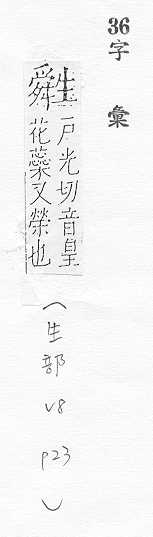 36字彙
䑞
戶光切音皇
花蘂又榮也
(生部 v8 p23)